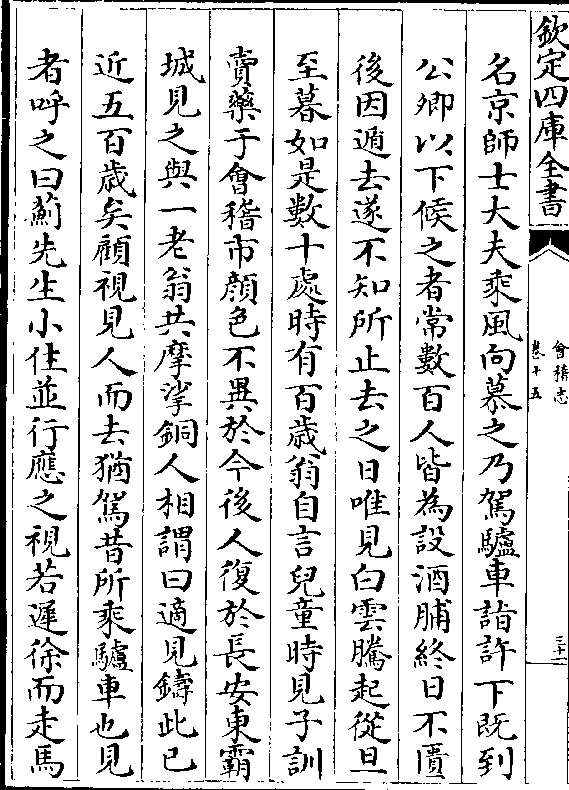 欽定四庫全書
會稽志
卷十五
名京師士大夫乘風向慕之乃駕驢車詣許下既到
公卿以下候之者常數百人皆為設酒脯終日不匱
後因遁去遂不知所止去之日唯見白雲騰起從旦
至暮如是數十處時有百歲翁自言兒童時見子訓
賣藥于會稽市顔色不異於今後人復於長安東霸
城見之與一老翁共摩挲銅人相謂曰適見鑄此已
近五百歲矣顧視見人而去猶駕昔所乘驢車也見
者呼之曰薊先生小住並行應之視若遲徐而走馬